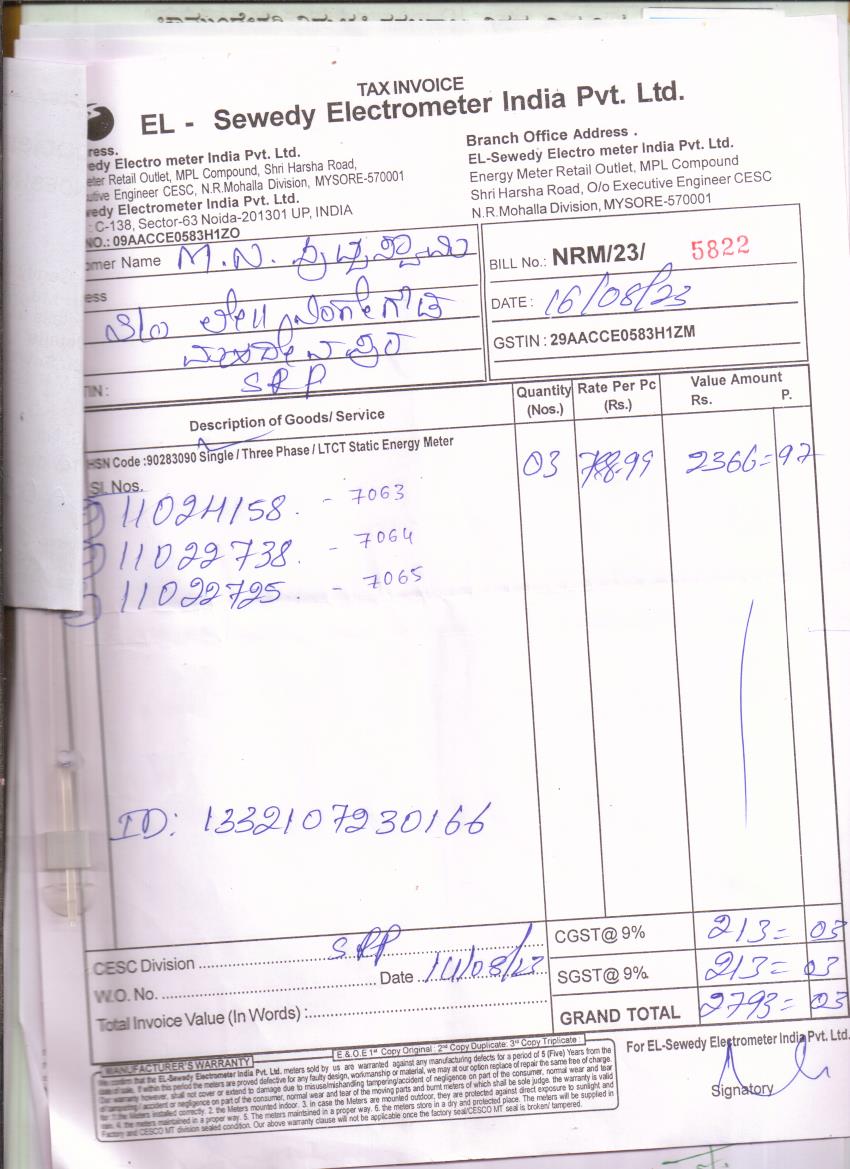 TAX INVOICE
EL - Sewedy Electrometer India Pvt. Ltd.
ress.
edy Electro meter India Pvt. Ltd.
eter Retail Outlet, MPL Compound, Shri Harsha Road,
utive Engineer CESC, N.R.Mohalla Division, MYSORE-570001
edy Electrometer India Pvt. Ltd.
: C-138, Sector-63 Noida-201301 UP, INDIA
NO.: 09AACCE0583H1ZO
Branch Office Address .
EL-Sewedy Electro meter India Pvt. Ltd.
Energy Meter Retail Outlet, MPL Compound
Shri Harsha Road, O/o Executive Engineer CESC
N.R.Mohalla Division, MYSORE-570001
omer Name M.N.
ess
SRP
TIN :
BILL No.: NRM/23/ 5822
DATE : 16/08/23
GSTIN : 29AACCE0583H1ZM
Description of Goods/ Service Quantity (Nos.) Rate Per Pc (Rs.) Value Amount Rs. P.
HSN Code :90283090 Single / Three Phase / LTCT Static Energy Meter 03 788.99 2366=97
Sl. Nos.
11024158. - 7063
11022738. - 7064
11022725. - 7065
ID: 1332107230166
CESC Division SRP
W.O. No. Date 14/08/23
Total Invoice Value (In Words) :
CGST@ 9% 213= 03
SGST@ 9% 213= 03
GRAND TOTAL 2793= 03
E.& O.E 1st Copy Original : 2nd Copy Duplicate: 3rd Copy Triplicate :
For EL-Sewedy Electrometer India Pvt. Ltd.
Signatory
MANUFACTURER'S WARRANTY
We confirm that the EL-Sewedy Energymeter India Pvt. Ltd. meters sold by us are warranted against any manufacturing defects for a period of 5 (Five) Years from the
date of sale. If within this period the meters are proved defective for any faulty design, workmanship or material, we may at our option replace of repair the same free of charge.
Our warranty however, shall not cover or extend to damage due to misuse/mishandling tampering/accident of negligence on part of the consumer, normal wear and tear
of tampering / accident or negligence on part of the consumer, normal wear and tear of the moving parts and burnt meters of which shall be sole judge. the warranty is valid
for: 1.the Meters installed correctly. 2. the Meters mounted indoor. 3. in case the Meters are mounted outdoor, they are protected against direct exposure to sunlight and
rain. 4. the meters maintained in a proper way. 5. The meters maintsined in a proper way. 6. the meters store in a dry and protected place. The meters will be supplied in
Factory and CESCO MT division sealed condition. Our above warranty clause will not be applicable once the factory seal/CESCO MT seal is broken/ tampered.